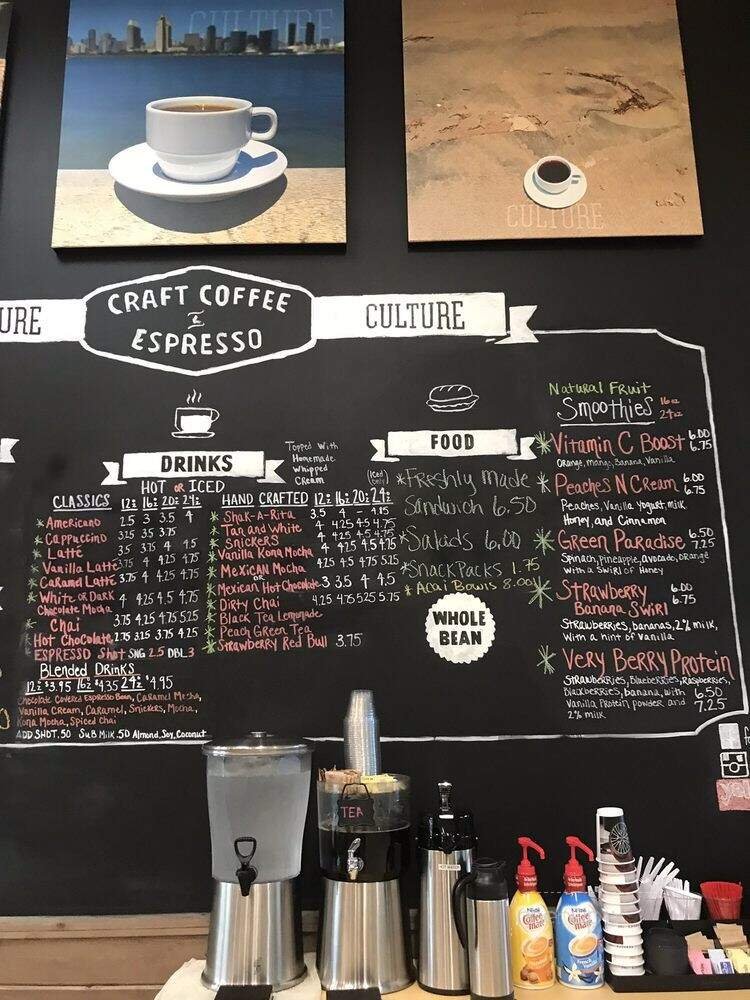 CULTURE
CULTURE
URE
CRAFT COFFEE
&
ESPRESSO
CULTURE
DRINKS
HOT OR ICED
CLASSICS 12z 16z 20z 24z
Americano 2.5 3 3.5 4
Cappuccino 3.25 3.5 3.75
Latte 3.5 3.75 4 4.5
Vanilla Latte 3.75 4 4.25 4.75
Caramel Latte 3.75 4 4.25 4.75
White OR Dark
Chocolate Mocha 4 4.25 4.5 4.75
Chai 3.75 4.25 4.75 5.25
Hot Chocolate 2.75 3.25 3.75 4.25
ESPRESSO Shot SNG 2.5 DBL 3
Blended Drinks
12z $3.95 16z $4.35 24z $4.95
Chocolate Covered Espresso Bean, Caramel Mocha,
Vanilla Cream, Caramel, Snickers, Mocha,
Kona Mocha, Spiced Chai
ADD SHOT .50 Sub Milk .50 Almond, Soy, Coconut
Topped With
Homemade
Whipped
Cream
(Iced
Only)
HAND CRAFTED 12z 16z 20z 24z
Shak-A-Rita 3.5 4 - 4.85
Tan and White 4 4.25 4.5 4.75
Snickers 4 4.25 4.5 4.75
Vanilla Kona Mocha
Mexican Mocha 4 4.25 4.75 5.25
OR
Mexican Hot Chocolate 3 3.5 4 4.5
Dirty Chai 4.25 4.75 5.25 5.75
Black Tea Lemonade
Peach Green Tea
Strawberry Red Bull 3.75
FOOD
Freshly Made
Sandwich 6.50
Salads 6.00
Snack Packs 1.75
Acai Bowls 8.00
WHOLE
BEAN
Natural Fruit
Smoothies 16oz
24oz
Vitamin C Boost 6.00
6.75
Orange, mango, Banana, Vanilla
Peaches N Cream 6.00
6.75
Peaches, Vanilla Yogurt, milk
Honey, and Cinnamon
Green Paradise 6.50
7.25
Spinach, Pineapple, avocado, orange
With a Swirl of Honey
Strawberry 6.00
Banana Swirl 6.75
Strawberries, bananas, 2% milk,
With a hint of vanilla
Very Berry Protein
Strawberries, Blueberries, raspberries,
Blackberries, banana, with 6.50
Vanilla Protein powder and 7.25
2% milk
TEA
Nestle
Coffee
mate
Nestle
Coffee
mate
French
Vanilla